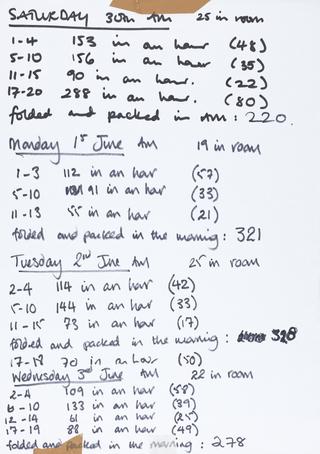 SATURDAY 30th AM 25 in room
1-4 153 in an hour (48)
5-10 156 in an hour (35)
11-15 90 in an hour. (22)
17-20 288 in an hour. (80)
folded and packed in AM: 220.
Monday 1st June AM 19 in room
1-3 112 in an hour (57)
5-10 91 in an hour (33)
11-13 55 in an hour (21)
folded and packed in the morning: 321
Tuesday 2nd June AM 25 in room
2-4 114 in an hour (42)
5-10 144 in an hour (33)
11-15 73 in an hour (17)
folded and packed in the morning: 328
17-18 70 in an hour (50)
Wednesday 3rd June AM 22 in room
2-4 109 in an hour (58)
6-10 133 in an hour (39)
12-14 61 in an hour (25)
17-19 88 in an hour (49)
folded and packed in the morning: 278